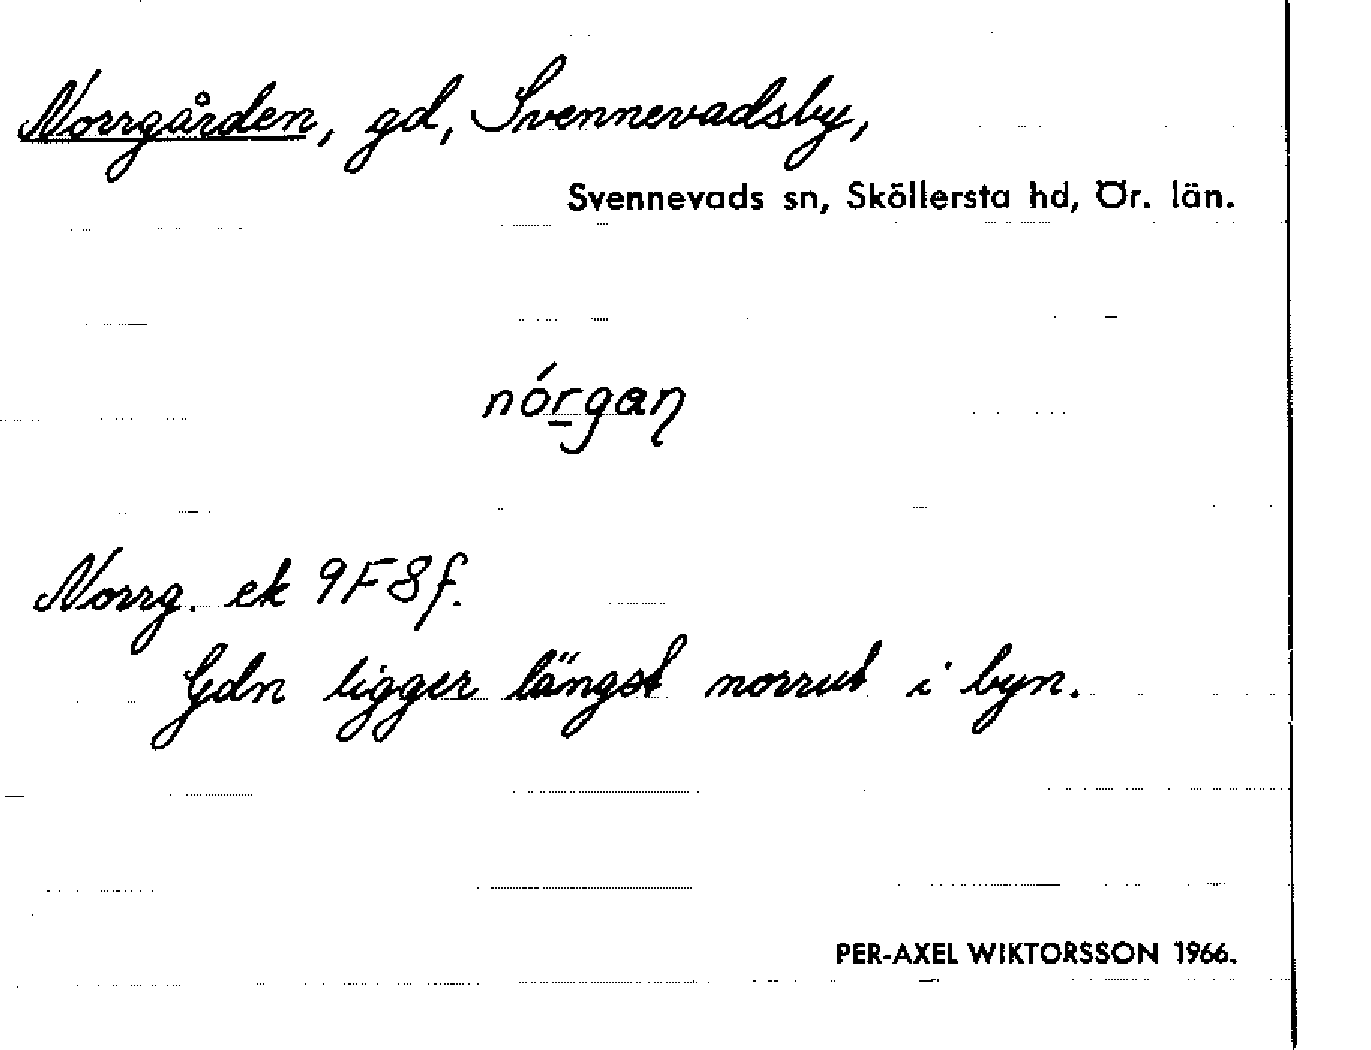 Norrgården, gd, Svennevadsby,
Svennevads sn, Sköllersta hd, Ör. län.
nór̲gaꞃ
Norrg. ek 9F8f.
Gdn ligger längst norrut i byn.
PER-AXEL WIKTORSSON 1966.